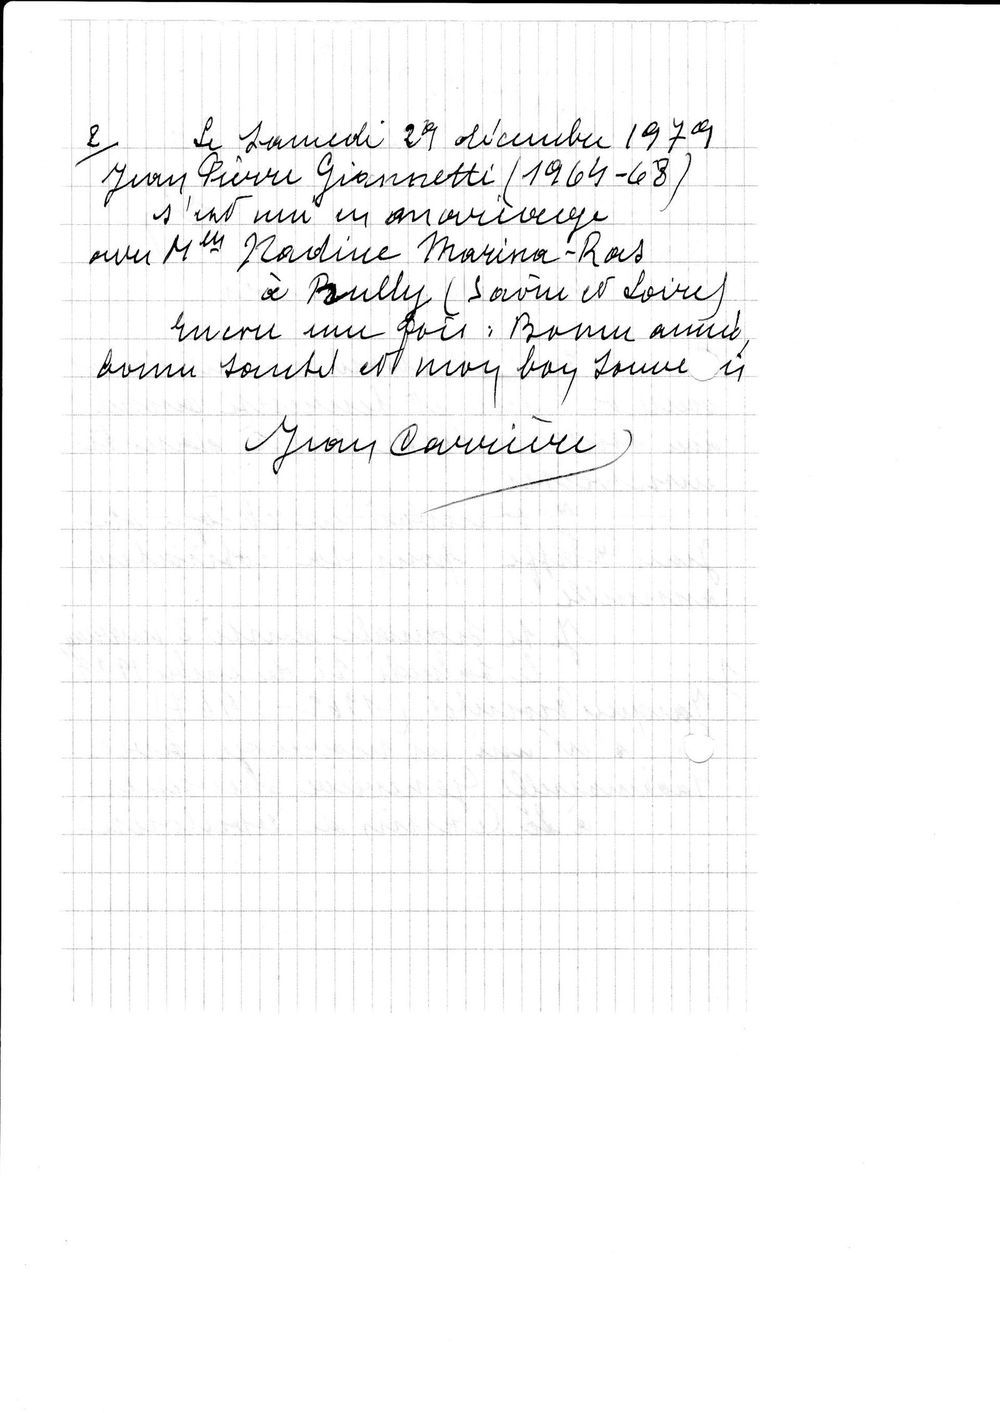 2/ Le Samedi 29 décembre 1979
Jean Pierre Giannetti (1964-68)
s'est uni en mariage
avec Mlle Nadine Marina-Ras
à Rully (Saône et Loire)
Encore une fois : Bonne année,
bonne santé et mon bon souvenir
Jean Carrière